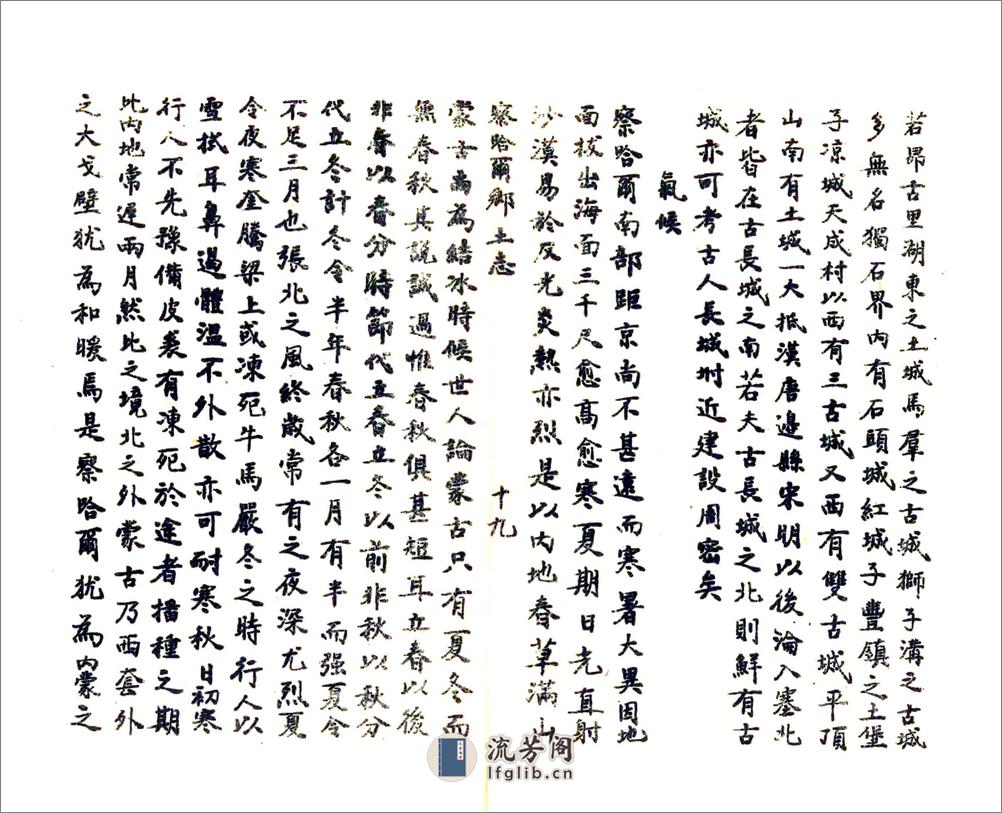 若昂古里湖東之土城馬羣之古城獅子溝之古城
多無名獨石界內有石頭城紅城子豐鎮之土堡
子凉城天成村以西有三古城又西有雙古城平頂
山南有土城一大抵漢唐邊縣宋明以後淪入塞北
者皆在古長城之南若夫古長城之北則鮮有古
城亦可考古人長城坿近建設周密矣
氣候
察哈爾南部距京尚不甚遠而寒暑大異因地
面拔出海面三千尺愈高愈寒夏期日光直射
沙漠易於反光炎熱亦烈是以內地春草滿山
察哈爾鄉土志
十九
蒙古尚為結冰時候世人論蒙古只有夏冬而
無春秋其說誠過惟春秋俱甚短耳立春以後
非春以春分時節代立春立冬以前非秋以秋分
代立冬計冬令半年春秋各一月有半而强夏令
不足三月也張北之風終歲常有之夜深尤烈夏
令夜寒奎騰梁上或凍死牛馬嚴冬之時行人以
雪拭耳鼻遏體溫不外散亦可耐寒秋日初寒
行人不先豫備皮裘有凍死於途者播種之期
比內地常遲兩月然比之境北之外蒙古乃西套外
之大戈壁犹為和暖焉是察哈爾犹為內蒙之
流芳阁
lfglib.cn